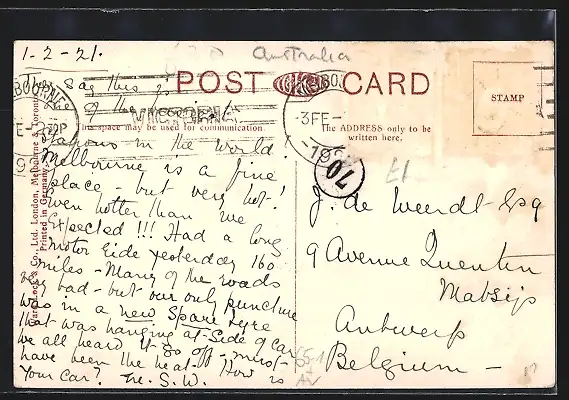 1-2-21.
Australia
They say this is
POST CARD
one of the most
VICTORIA
This space may be used for communication.
The ADDRESS only to be
written here.
STAMP
3FE
in the world!
Melbourne is a fine
place - but very hot!
even hotter than we
Expected!!! Had a long
motor ride yesterday 160
miles - Many of the roads
very bad - but our only puncture
was in a new Spare tyre
that was hanging at side of car
we all heard it go off - must
have been the heat. How is
Your Car? S. W.
70
£1-
J. de Weerdt Esq
9 Avenue Quentin
Matsijs
Antwerp
Belgium -
Ward Lock & Co., Ltd. London, Melbourne & Toronto
Printed in Germany